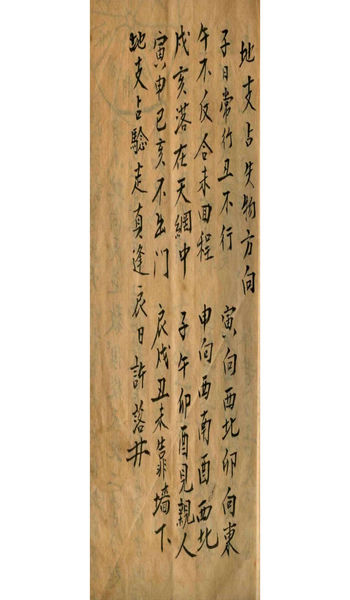 地支占失物方向
子日常行丑不行 寅向西北卯向東
午不反合未回程 申向西南酉西北
戌亥落在天網中 子午卯酉見親人
寅申巳亥不出門 辰戌丑未靠墻下
地支占驗走真逢 辰日許落井